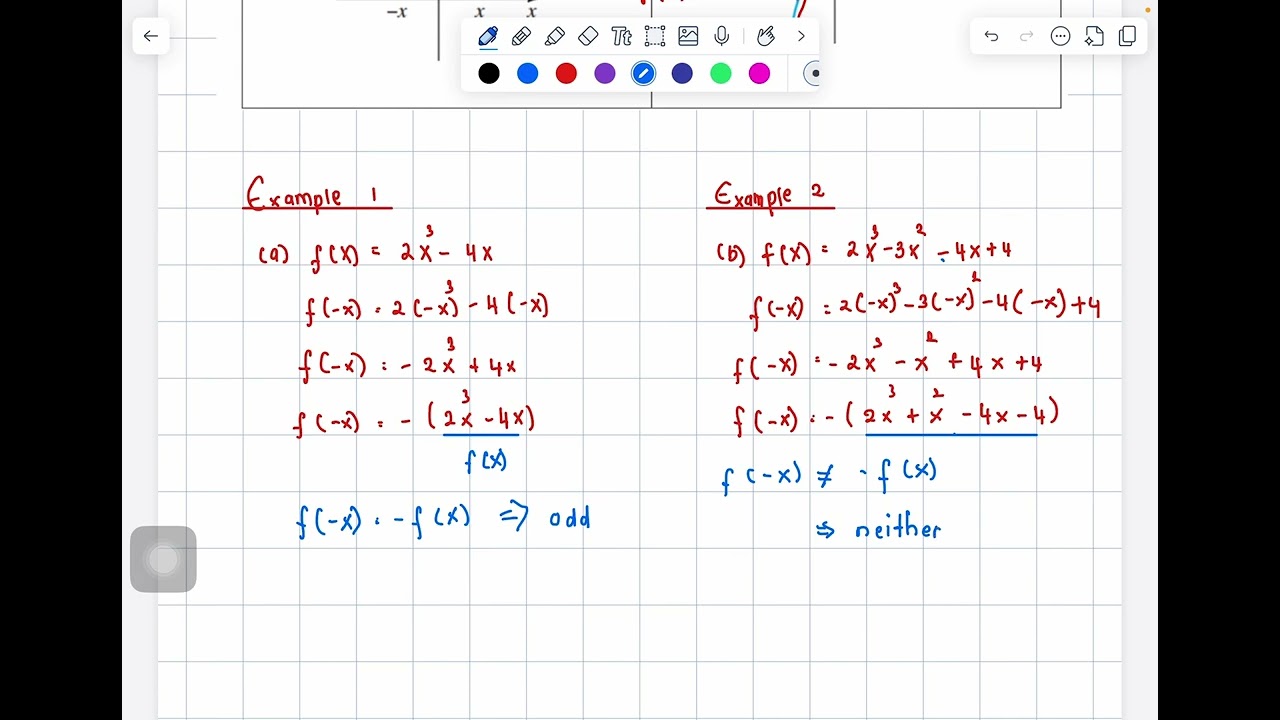 -x x x
Tt
Example 1
(a) f(x) = 2x³ - 4x
f(-x) = 2(-x)³ - 4(-x)
f(-x) = - 2x³ + 4x
f(-x) = - (2x³ - 4x)
f(x)
f(-x) = -f(x) ⇒ odd
Example 2
(b) f(x) = 2x³ - 3x² - 4x + 4
f(-x) = 2(-x)³ - 3(-x)² - 4(-x) + 4
f(-x) = - 2x³ - x² + 4x + 4
f(-x) = - (2x³ + x² - 4x - 4)
f(-x) ≠ - f(x)
⇒ neither